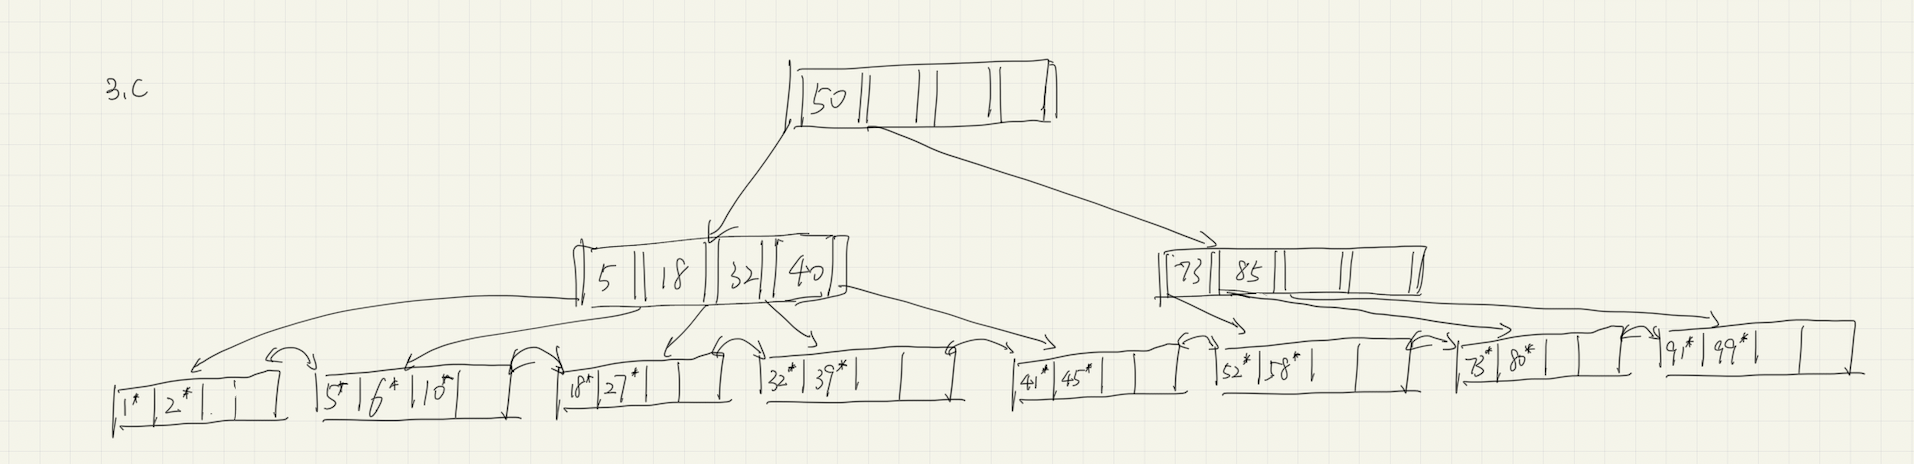 3.C
50
5 18 32 40
73 85
1* 2*
5* 6* 10*
18* 27*
32* 39*
41* 45*
52* 58*
73* 80*
91* 99*